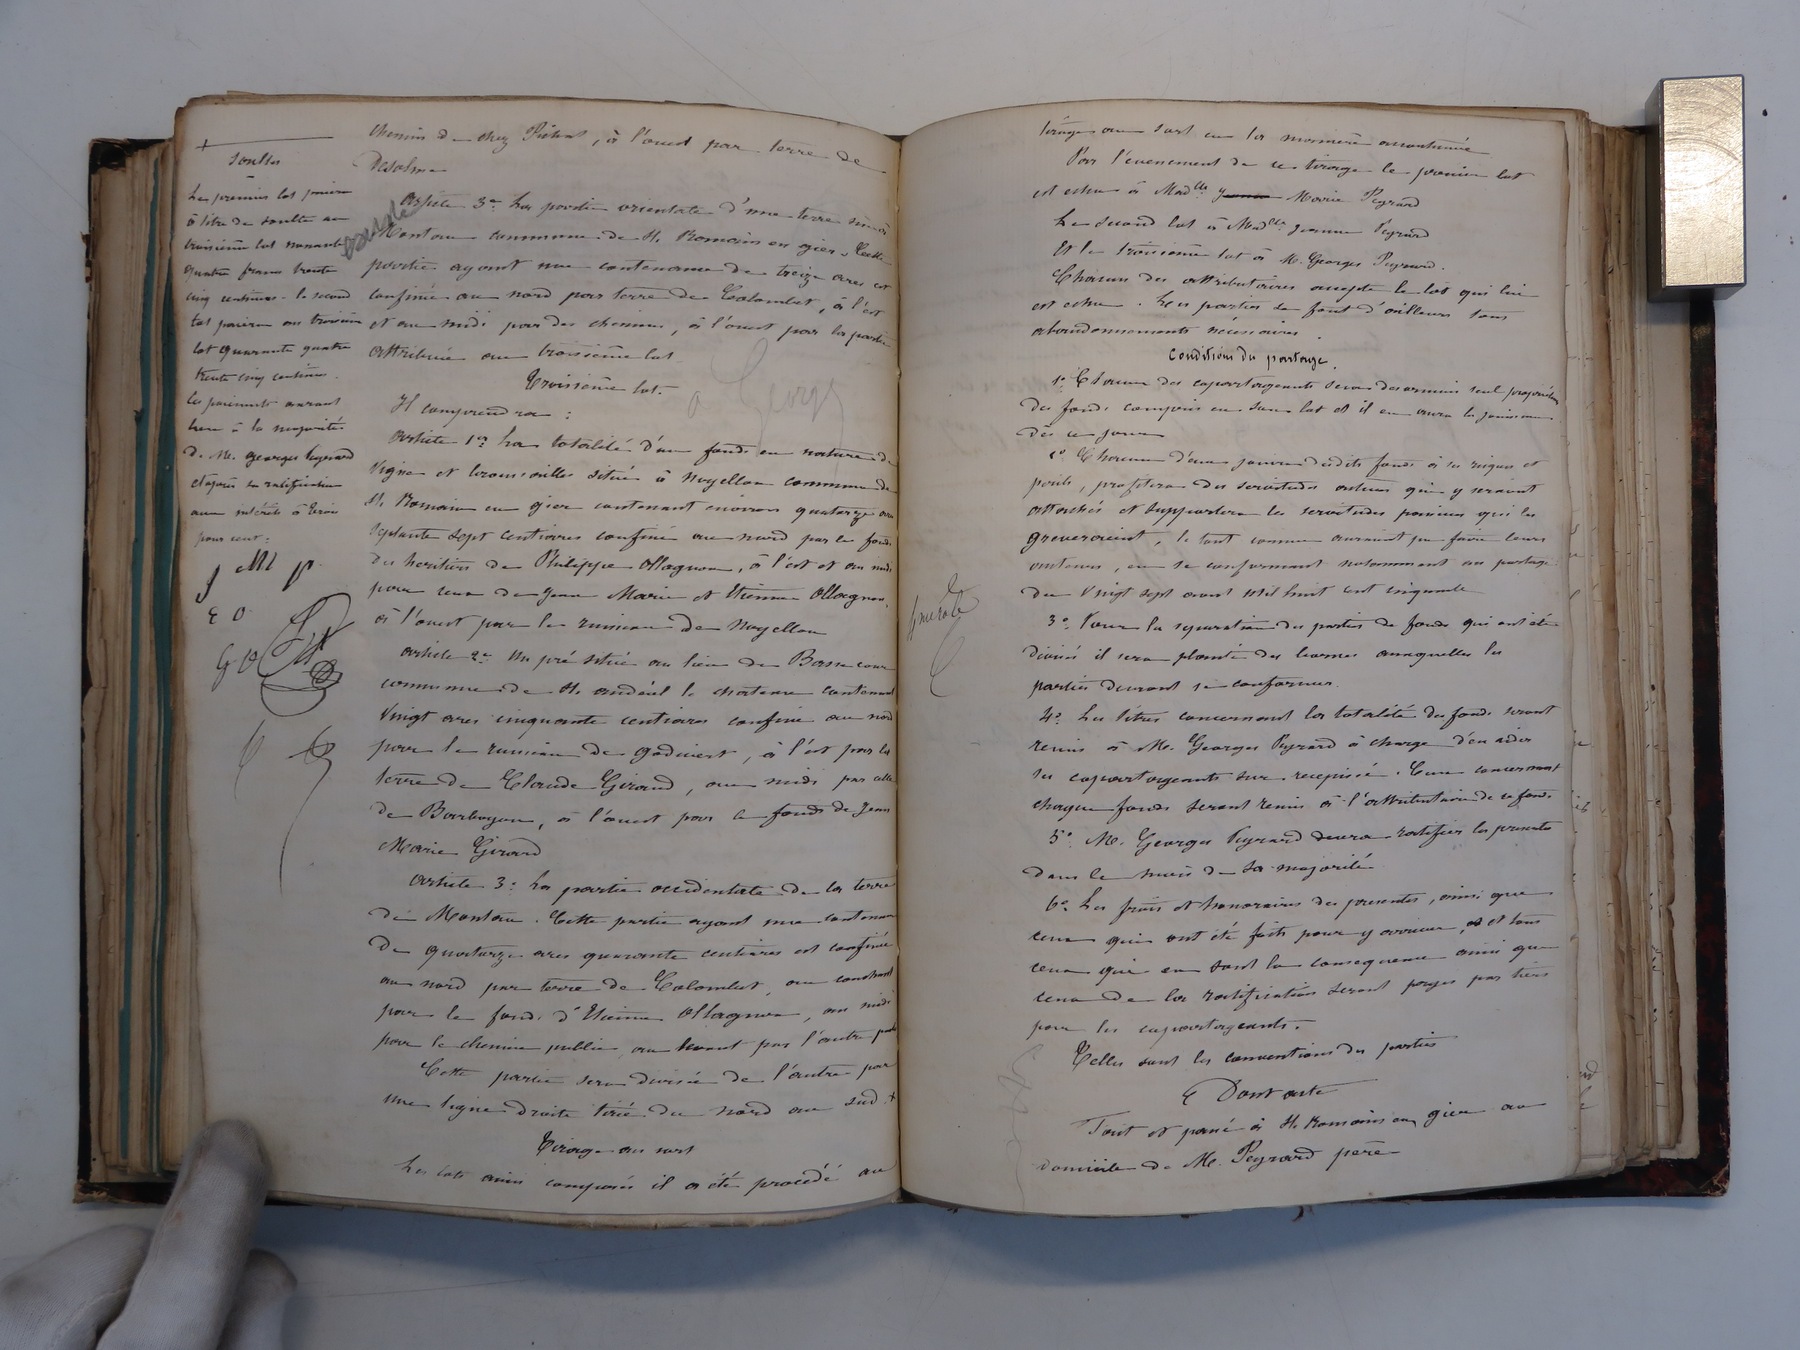 soultes
Le premier lot paiera
à titre de soulte au
troisième lot nonante
quatre francs trente
cinq centimes. le second
lot paiera au troisième
lot quarante quatre
trente cinq centimes.
les paiements auront
lieu à la majorité
de M. georges Peyrard
et après sa ratification
aux intérêts à trois
pour cent.
J M P
E O
G O
chemin de chez Pichat, à l'ouest par terre de
Desolme
Article 3e La partie orientale d'une terre située
Montou commune de St. Romain en gier. Cette
partie ayant une contenance de treize ares est
confinée au nord par terre de Colombet, à l'est
et au midi par des chemins, à l'ouest par la partie
attribuée au troisième lot
Troisième lot.
a George
Il comprendra :
Article 1er La totalité d'un fonds en nature de
vigne et broussailles situé à Noyellou commune de
St. Romain en gier contenant environ quatorze ares
septante sept centiares confiné au nord par le fonds
des heritiers de Philippe Ollagnon, à l'est et au midi
par ceux de Jean Marie et Etienne Ollagnon,
à l'ouest par le ruisseau de Noyellou
Article 2e Un pré situé au lieu de Basse cour
commune de St. andéol le chateau contenant
vingt ares cinquante centiares confiné au nord
par le ruisseau de godivert, à l'est par la
terre de Claude Girard, au midi par celle
de Barbayon, à l'ouest par le fonds de Jean
Marie Girard
Article 3e La partie occidentale de la terre
de Montou. Cette partie ayant une contenance
de quatorze ares quarante centiares est confinée
au nord par terre de Colombet, au couchant
par le fonds d'Etienne Ollagnon, au midi
par le chemin public au levant par l'autre partie
Cette partie sera divisée de l'autre par
une ligne droite tirée du nord au sud +
Tirage au sort
Les lots ainsi composés il a été procédé au
tirage au sort en la manière accoutumée
Par l'évenement de ce tirage le premier lot
est echu à Madlle Marie Peyrard
Le second lot à Madlle Jeanne Peyrard
Et le troisième lot à M. Georges Peyrard.
Chacun des attributaires accepte le lot qui lui
est echu. Les parties se font d'ailleurs tous
abandonnements nécessaires
Conditions du partage.
1e Chacun des copartageants sera desormais seul propriétaire
des fonds compris en son lot et il en aura la jouissance
dès ce jour
2e Chacun d'eux jouira desdits fonds à ses risques et
périls, profitera des servitudes actives qui y seraient
attachées et supportera les servitudes passives qui les
greveraient, le tout comme auraient pu faire leurs
auteurs, en se conformant notamment au partage
du vingt sept aout mil huit cent cinquante
3e Pour la separation des parties de fonds qui ont été
divisés il sera planté des bornes auxquelles les
parties devront se conformer.
4e Les titres concernant la totalité des fonds seront
remis à M. Georges Peyrard à charge d'en aider
ses copartageants sur recepissé. Ceux concernant
chaque fonds seront remis à l'attributaire de ce fonds
5e M. Georges Peyrard devra ratifier les presentes
dans le mois de sa majorité
6e Les frais et honoraires des presentes, ainsi que
ceux qui ont été faits pour y arriver, et tous
ceux qui en sont la consequence ainsi que
ceux de la ratification seront payes par tiers
par les copartageants.
Telles sont les conventions des parties
Dont acte
Fait et passé à St. Romain en gier au
domicile de M. Peyrard père